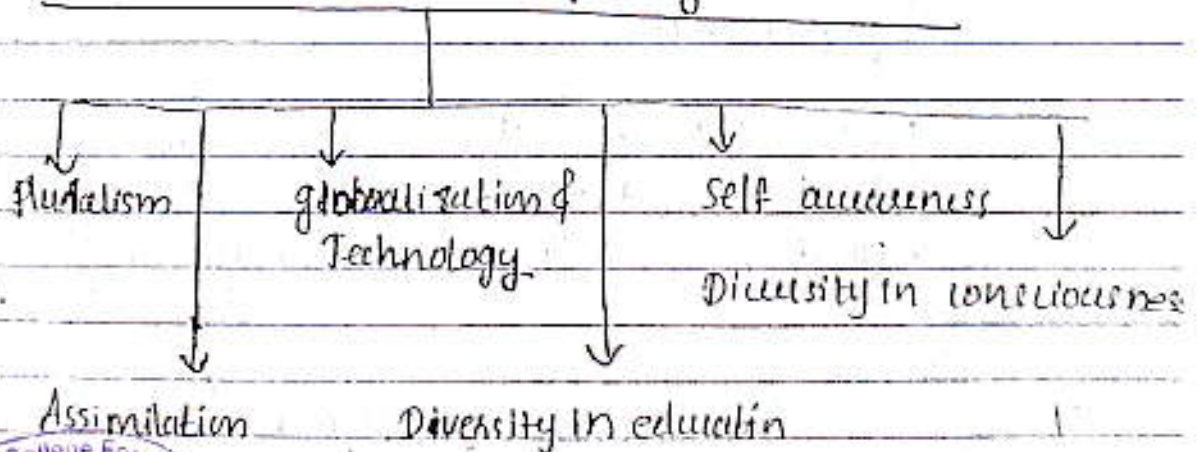 Pluralism
globalization &
Technology
Self awareness
Diversity in consciousnes
Assimilation
Diversity in educatin
College